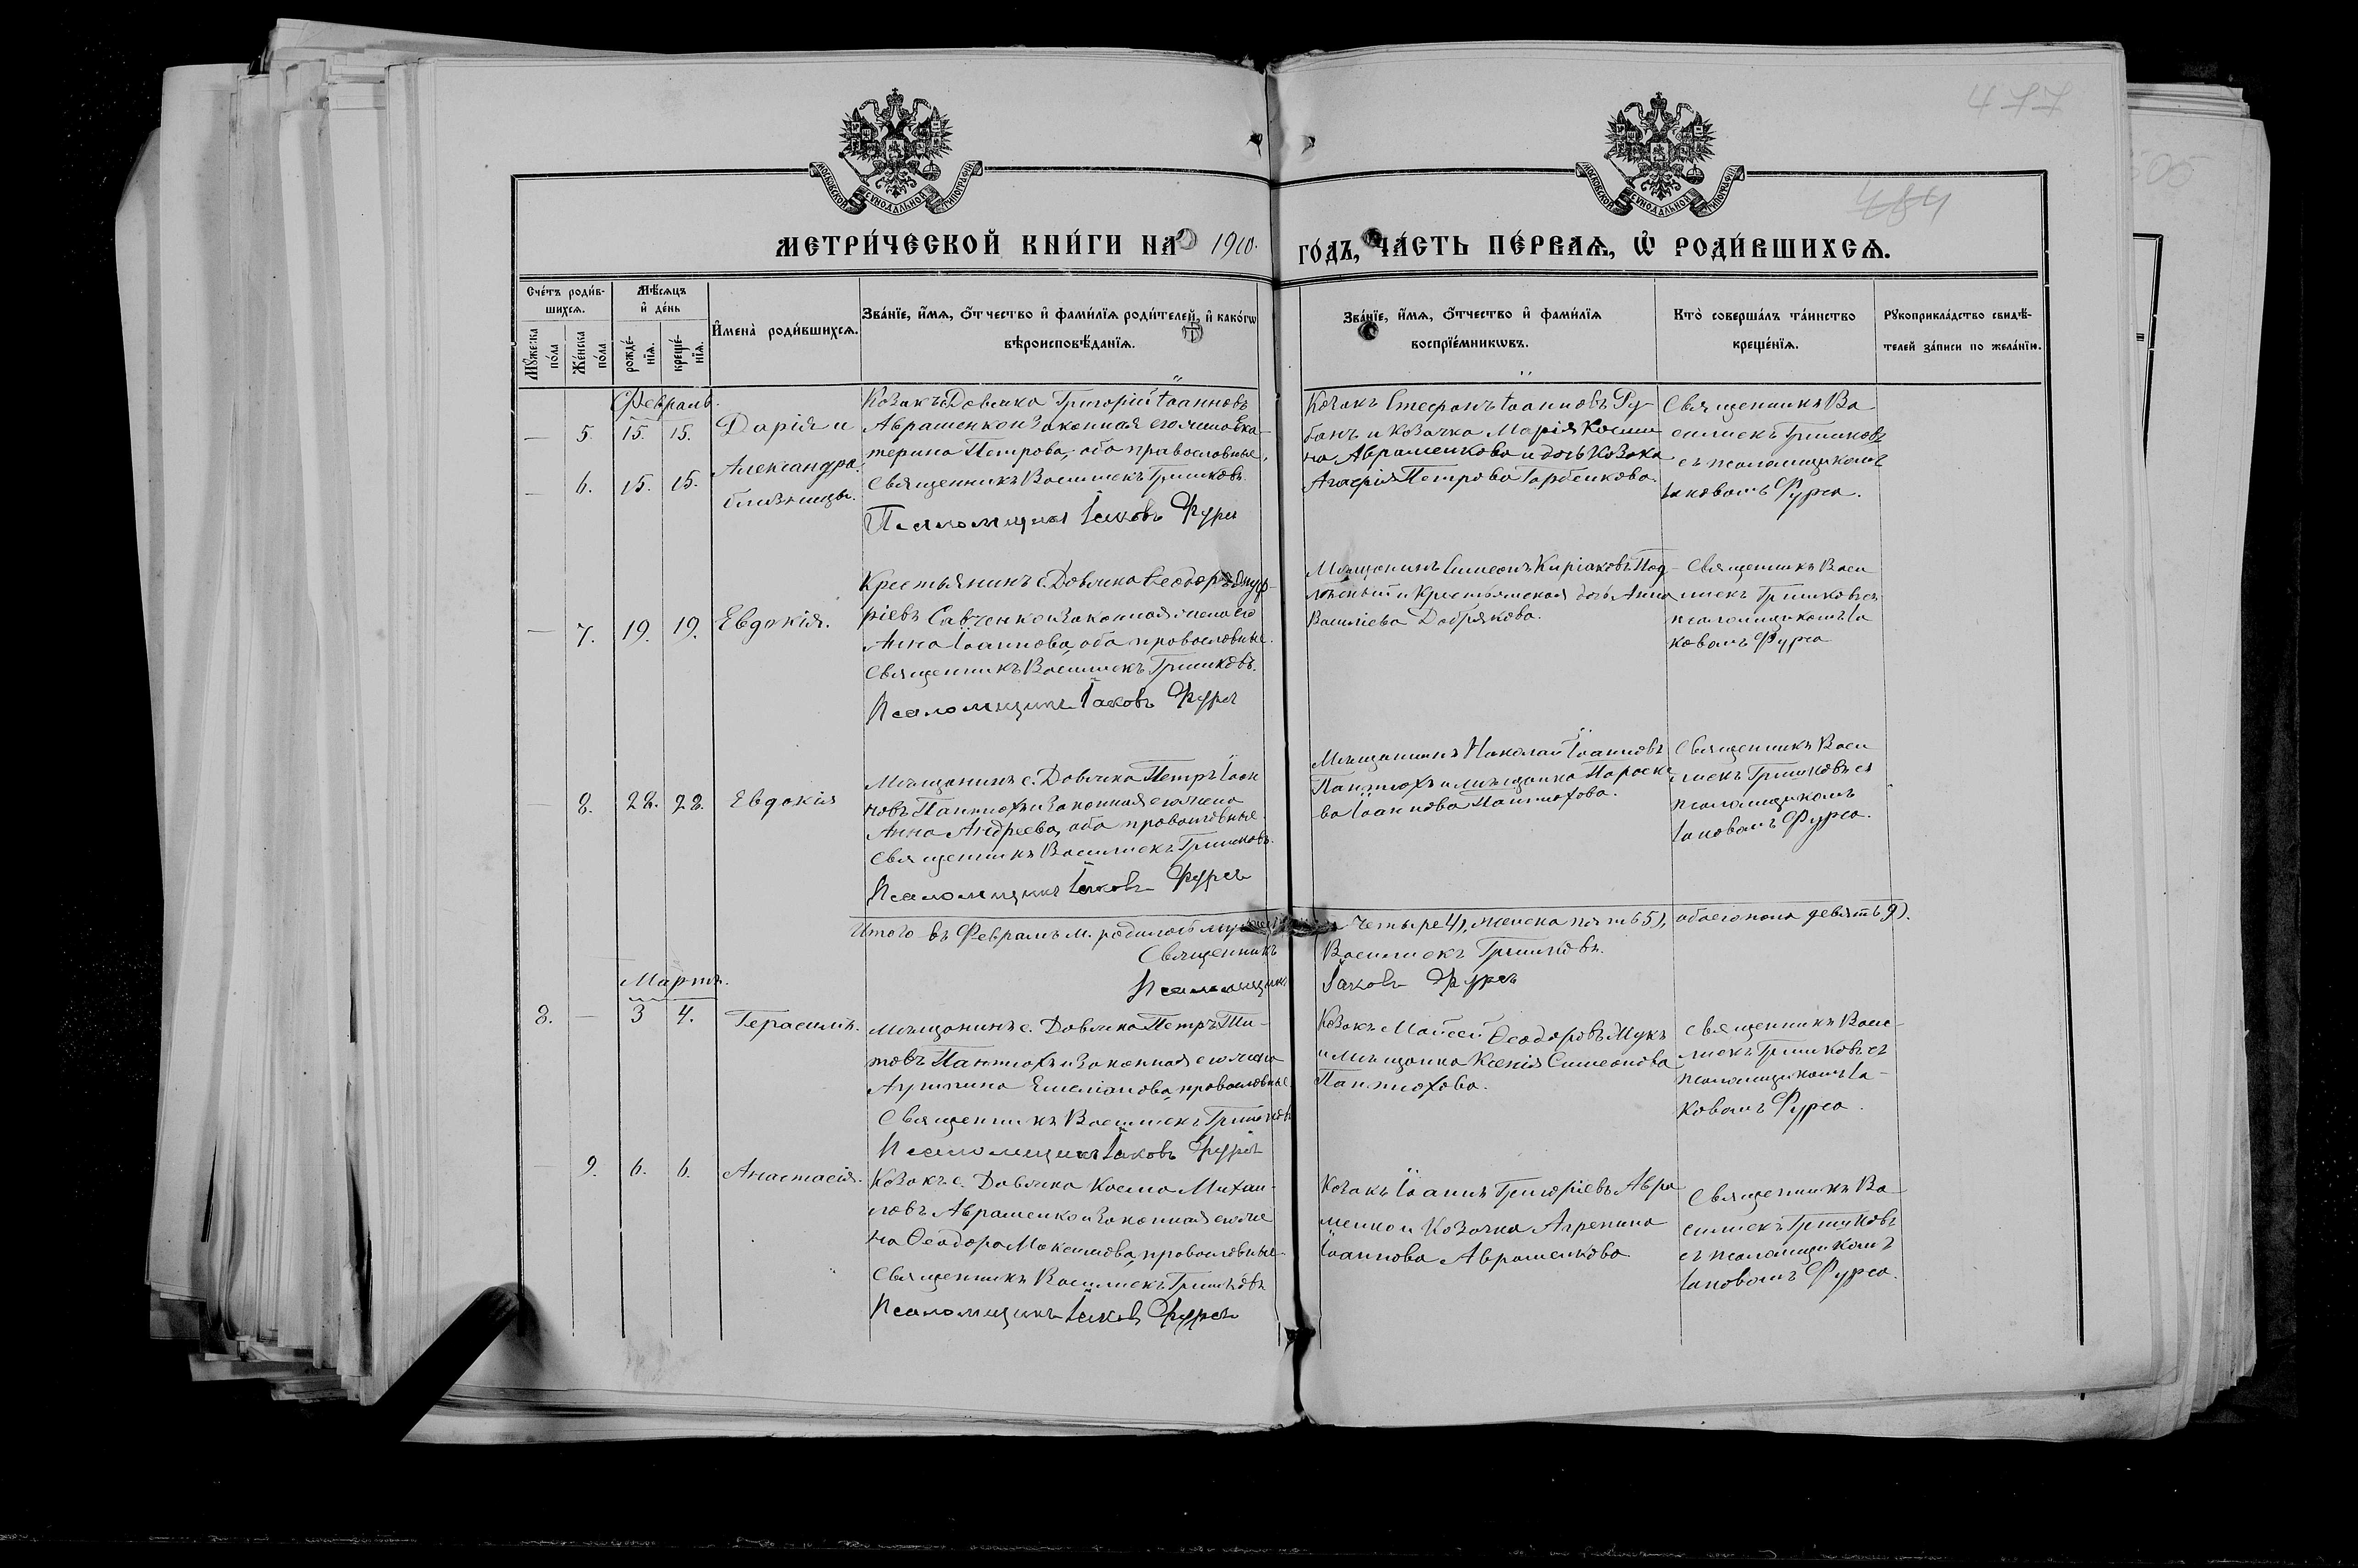 477
484
МОСКОВСКОЙ СѴНОДАЛЬНОЙ ТИПОГРАФІИ
МОСКОВСКОЙ СѴНОДАЛЬНОЙ ТИПОГРАФІИ
МЕТРИ́ЧЕСКОЙ КНИ́ГИ НА 1910. ГО́ДЪ, ЧА́СТЬ ПЕ́РВАѦ, Ѽ РОДИ́ВШИХСѦ.
Сче́тъ роди́в-
шихсѧ.
Мꙋ́жеска по́ла
Же́нска по́ла
Мѣ́сѧцъ
и҆ де́нь
рожде́-
нїѧ.
креще́-
нїѧ.
И҆мена̀ роди́вшихсѧ.
Зва́нїе, и҆́мѧ, ѻ҆́тчество и҆ фами́лїѧ роди́телей, и҆ како́гѡ
вѣроисповѣ́данїѧ.
Зва́нїе, и҆́мѧ, ѻ҆́тчество и҆ фами́лїѧ
воспрїе́мникѡвъ.
Кто̀ соверша́лъ та́инство
креще́нїѧ.
Рꙋкоприкла́дство свидѣ́-
телей за́писи по жела́нїю.
Февраль.
— 5. 15. 15. Дарія и
— 6. 15. 15. Александра.
близницы.
Козакъ с. Довжика Григорій Іоанновъ
Аврашенко и законная его жена Ека-
терина Петрова, оба православные.
Священникъ Василискъ Гришковъ.
Псаломщикъ Іаковъ Фурса
Козакъ Стефанъ Іоанновъ Ру-
банъ и козачка Марія Косми-
на Аврашенкова и дочь козака
Агафія Петрова Горбенкова.
Священникъ Ва-
силискъ Гришковъ
съ псаломщикомъ
Іаковомъ Фурса.
— 7. 19. 19. Евдокія.
Крестьянинъ с. Довжика Ѳеодоръ Онуф-
ріевъ Савченко и законная жена его
Анна Іоаннова, оба православные.
Священникъ Василискъ Гришковъ.
Псаломщикъ Іаковъ Фурса
Мѣщанинъ Симеонъ Киріаковъ Под-
и крестьянская дочь Анна
Василіева Добрякова.
Священникъ Васи-
лискъ Гришковъ съ
псаломщикомъ Іа-
ковомъ Фурса
— 8. 22. 22. Евдокія
Мѣщанинъ с. Довжика Петръ Іоан-
новъ Пантюхъ и законная его жена
Анна Андреева, оба православные.
Священникъ Василискъ Гришковъ.
Псаломщикъ Іаковъ Фурса
Мѣщанинъ Николай Іоанновъ
Пантюхъ и мѣщанка Параске-
ва Іоаннова Пантюхова.
Священникъ Васи-
лискъ Гришковъ съ
псаломщикомъ
Іаковомъ Фурса.
Итого въ Февралѣ м. родилось мужеска четыре 4), женска пять 5), обоего пола девять 9).
Священникъ Василискъ Гришковъ.
Псаломщикъ Іаковъ Фурса
Мартъ.
8. — 3 4. Герасимъ.
Мѣщанинъ с. Довжика Петръ Ти-
товъ Пантюхъ и законная его жена
Агрипина Емеліанова, православные.
Священникъ Василискъ Гришковъ
Псаломщикъ Іаковъ Фурса
Козакъ Моисей Ѳеодоровъ Жукъ
и мѣщанка Ксенія Симеонова
Пантюхова.
Священникъ Васи-
лискъ Гришковъ съ
псаломщикомъ Іа-
ковомъ Фурса.
— 9. 6. 6. Анастасія.
Козакъ с. Довжика Косма Михаи-
ловъ Аврашенко и законная его же-
на Ѳеодора Максимова, православные.
Священникъ Василискъ Гришковъ
Псаломщикъ Іаковъ Фурса
Козакъ Іоаннъ Григоріевъ Авра-
шенко и козачка Агрепина
Іоаннова Аврашенкова
Священникъ Ва-
силискъ Гришковъ
съ псаломщикомъ
Іаковомъ Фурса.